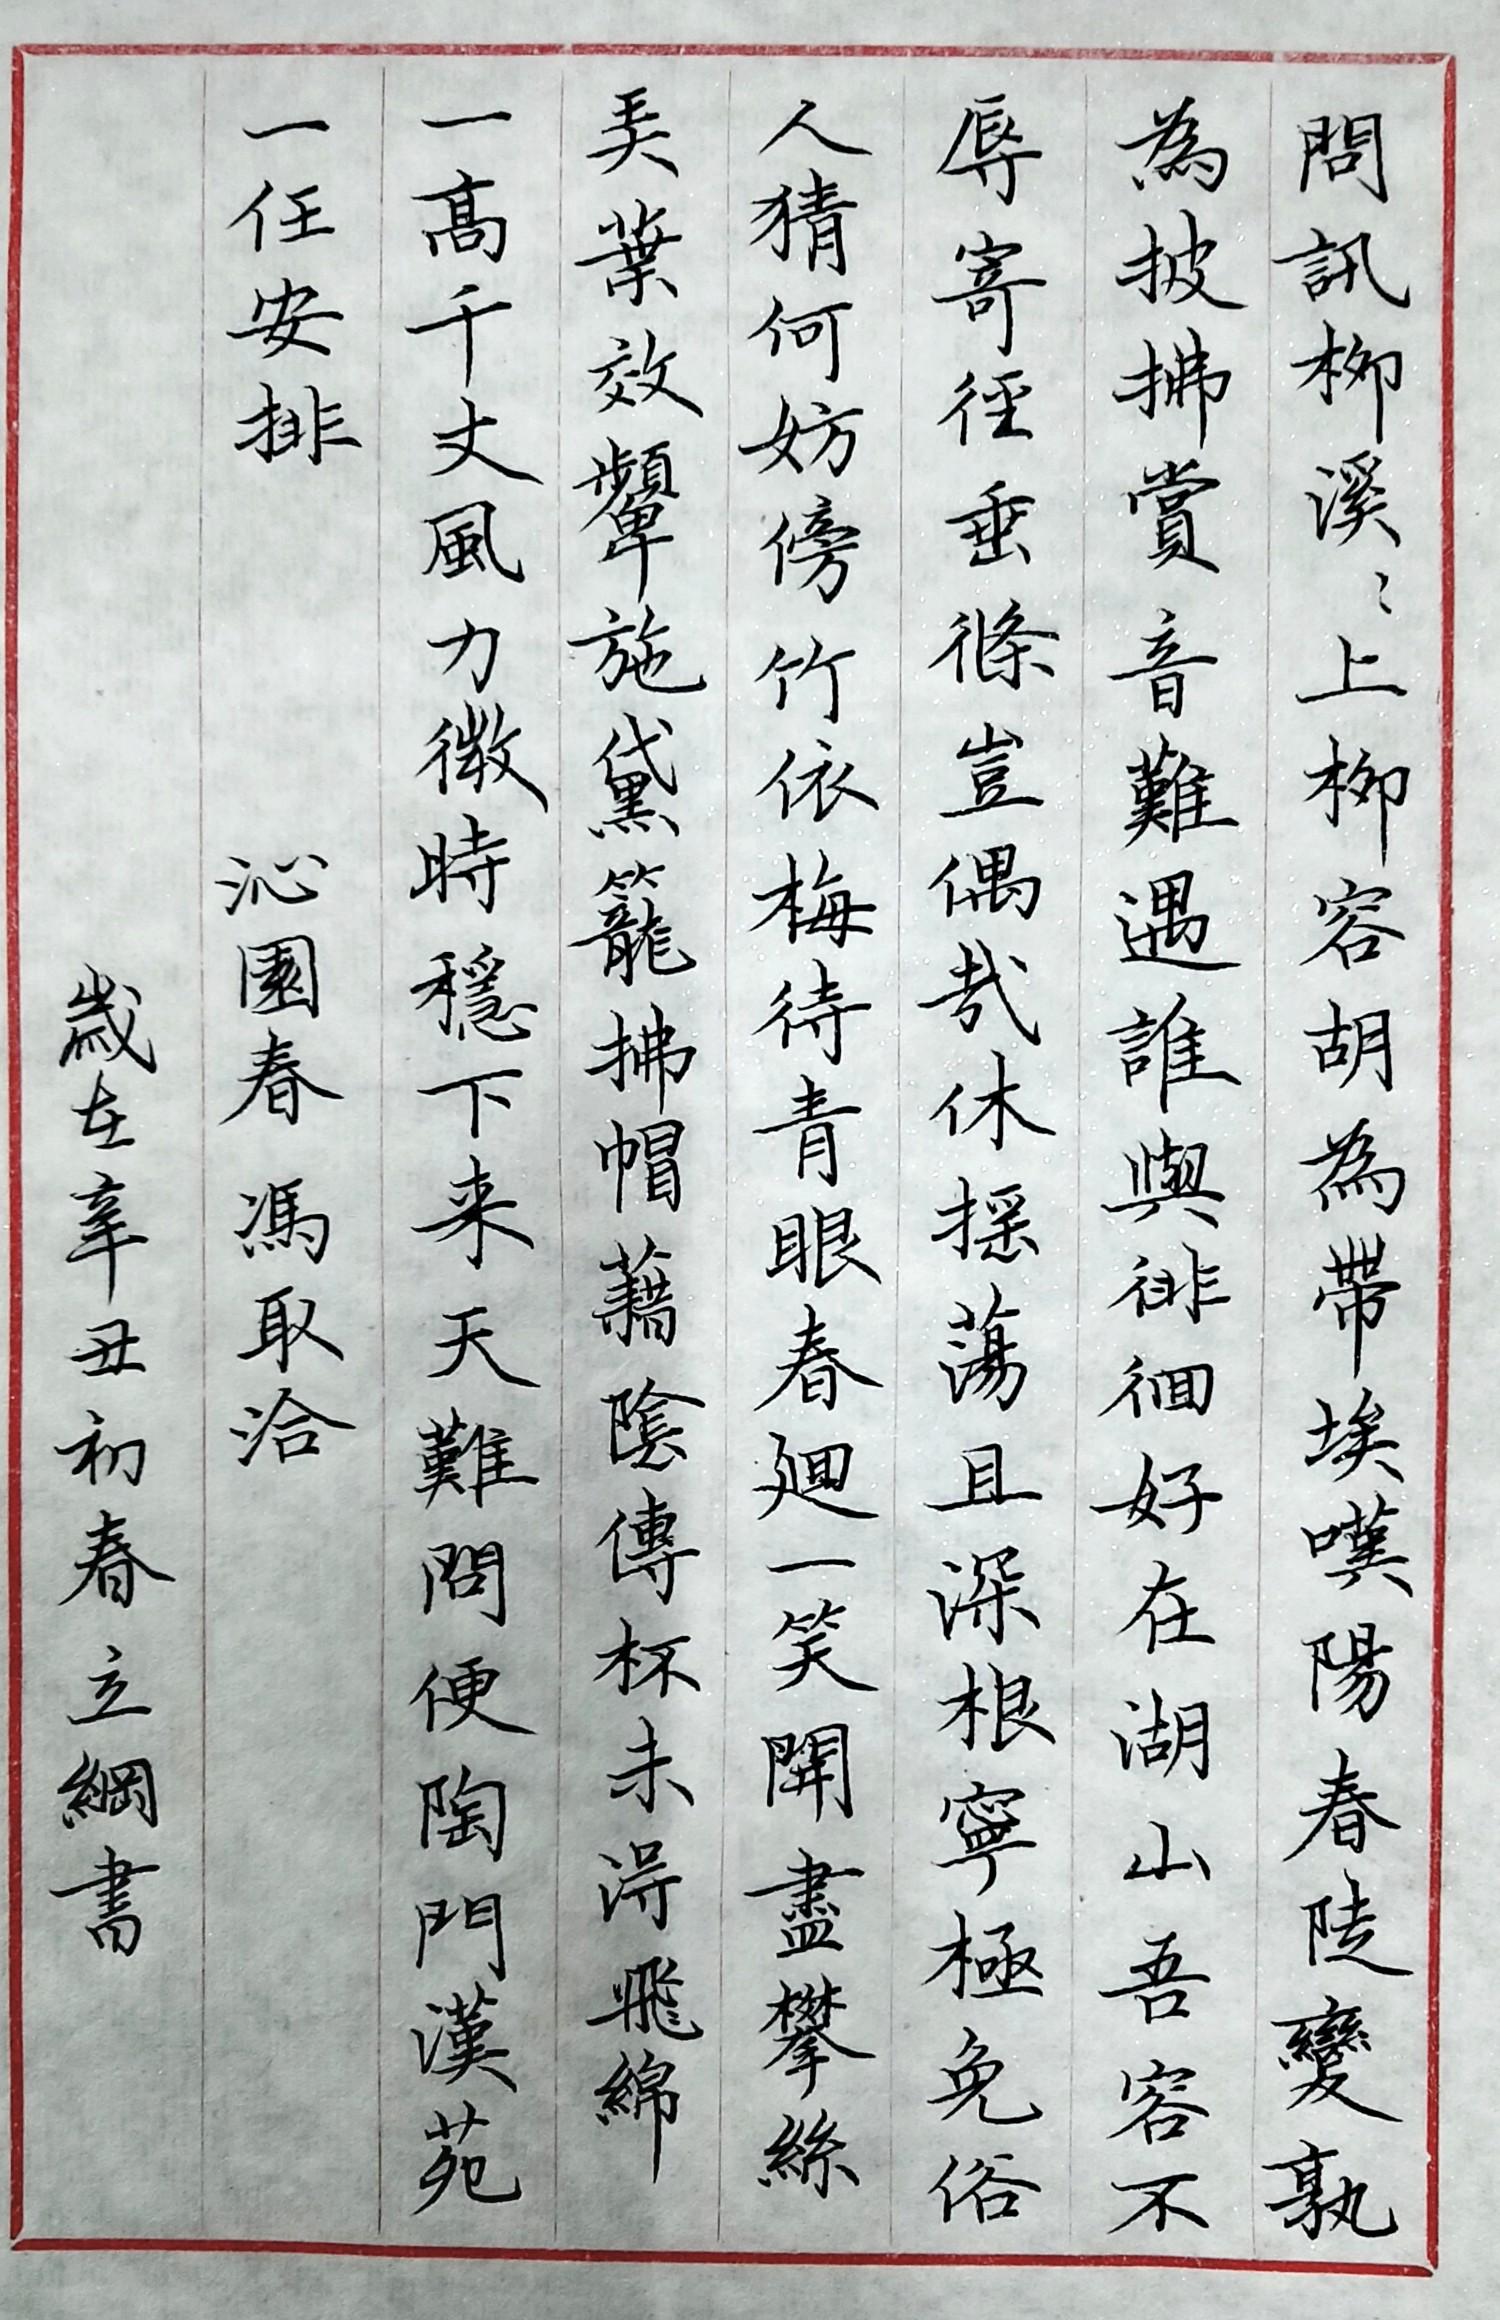 問訊柳溪〻上柳容胡為帶埃嘆陽春陡變孰
為披拂賞音難遇誰與徘徊好在湖山吾容不
辱寄徑垂絛豈偶哉休搖蕩且深根寧極免俗
人猜何妨傍竹依梅待青眼春廻一笑開盡攀絲
弄葉效顰施黛籠拂帽藉陰傳杯未淂飛綿
一高千丈風力微時穩下来天難問便陶門漢苑
一任安排
沁園春 馮取洽
歲在辛丑初春立綱書